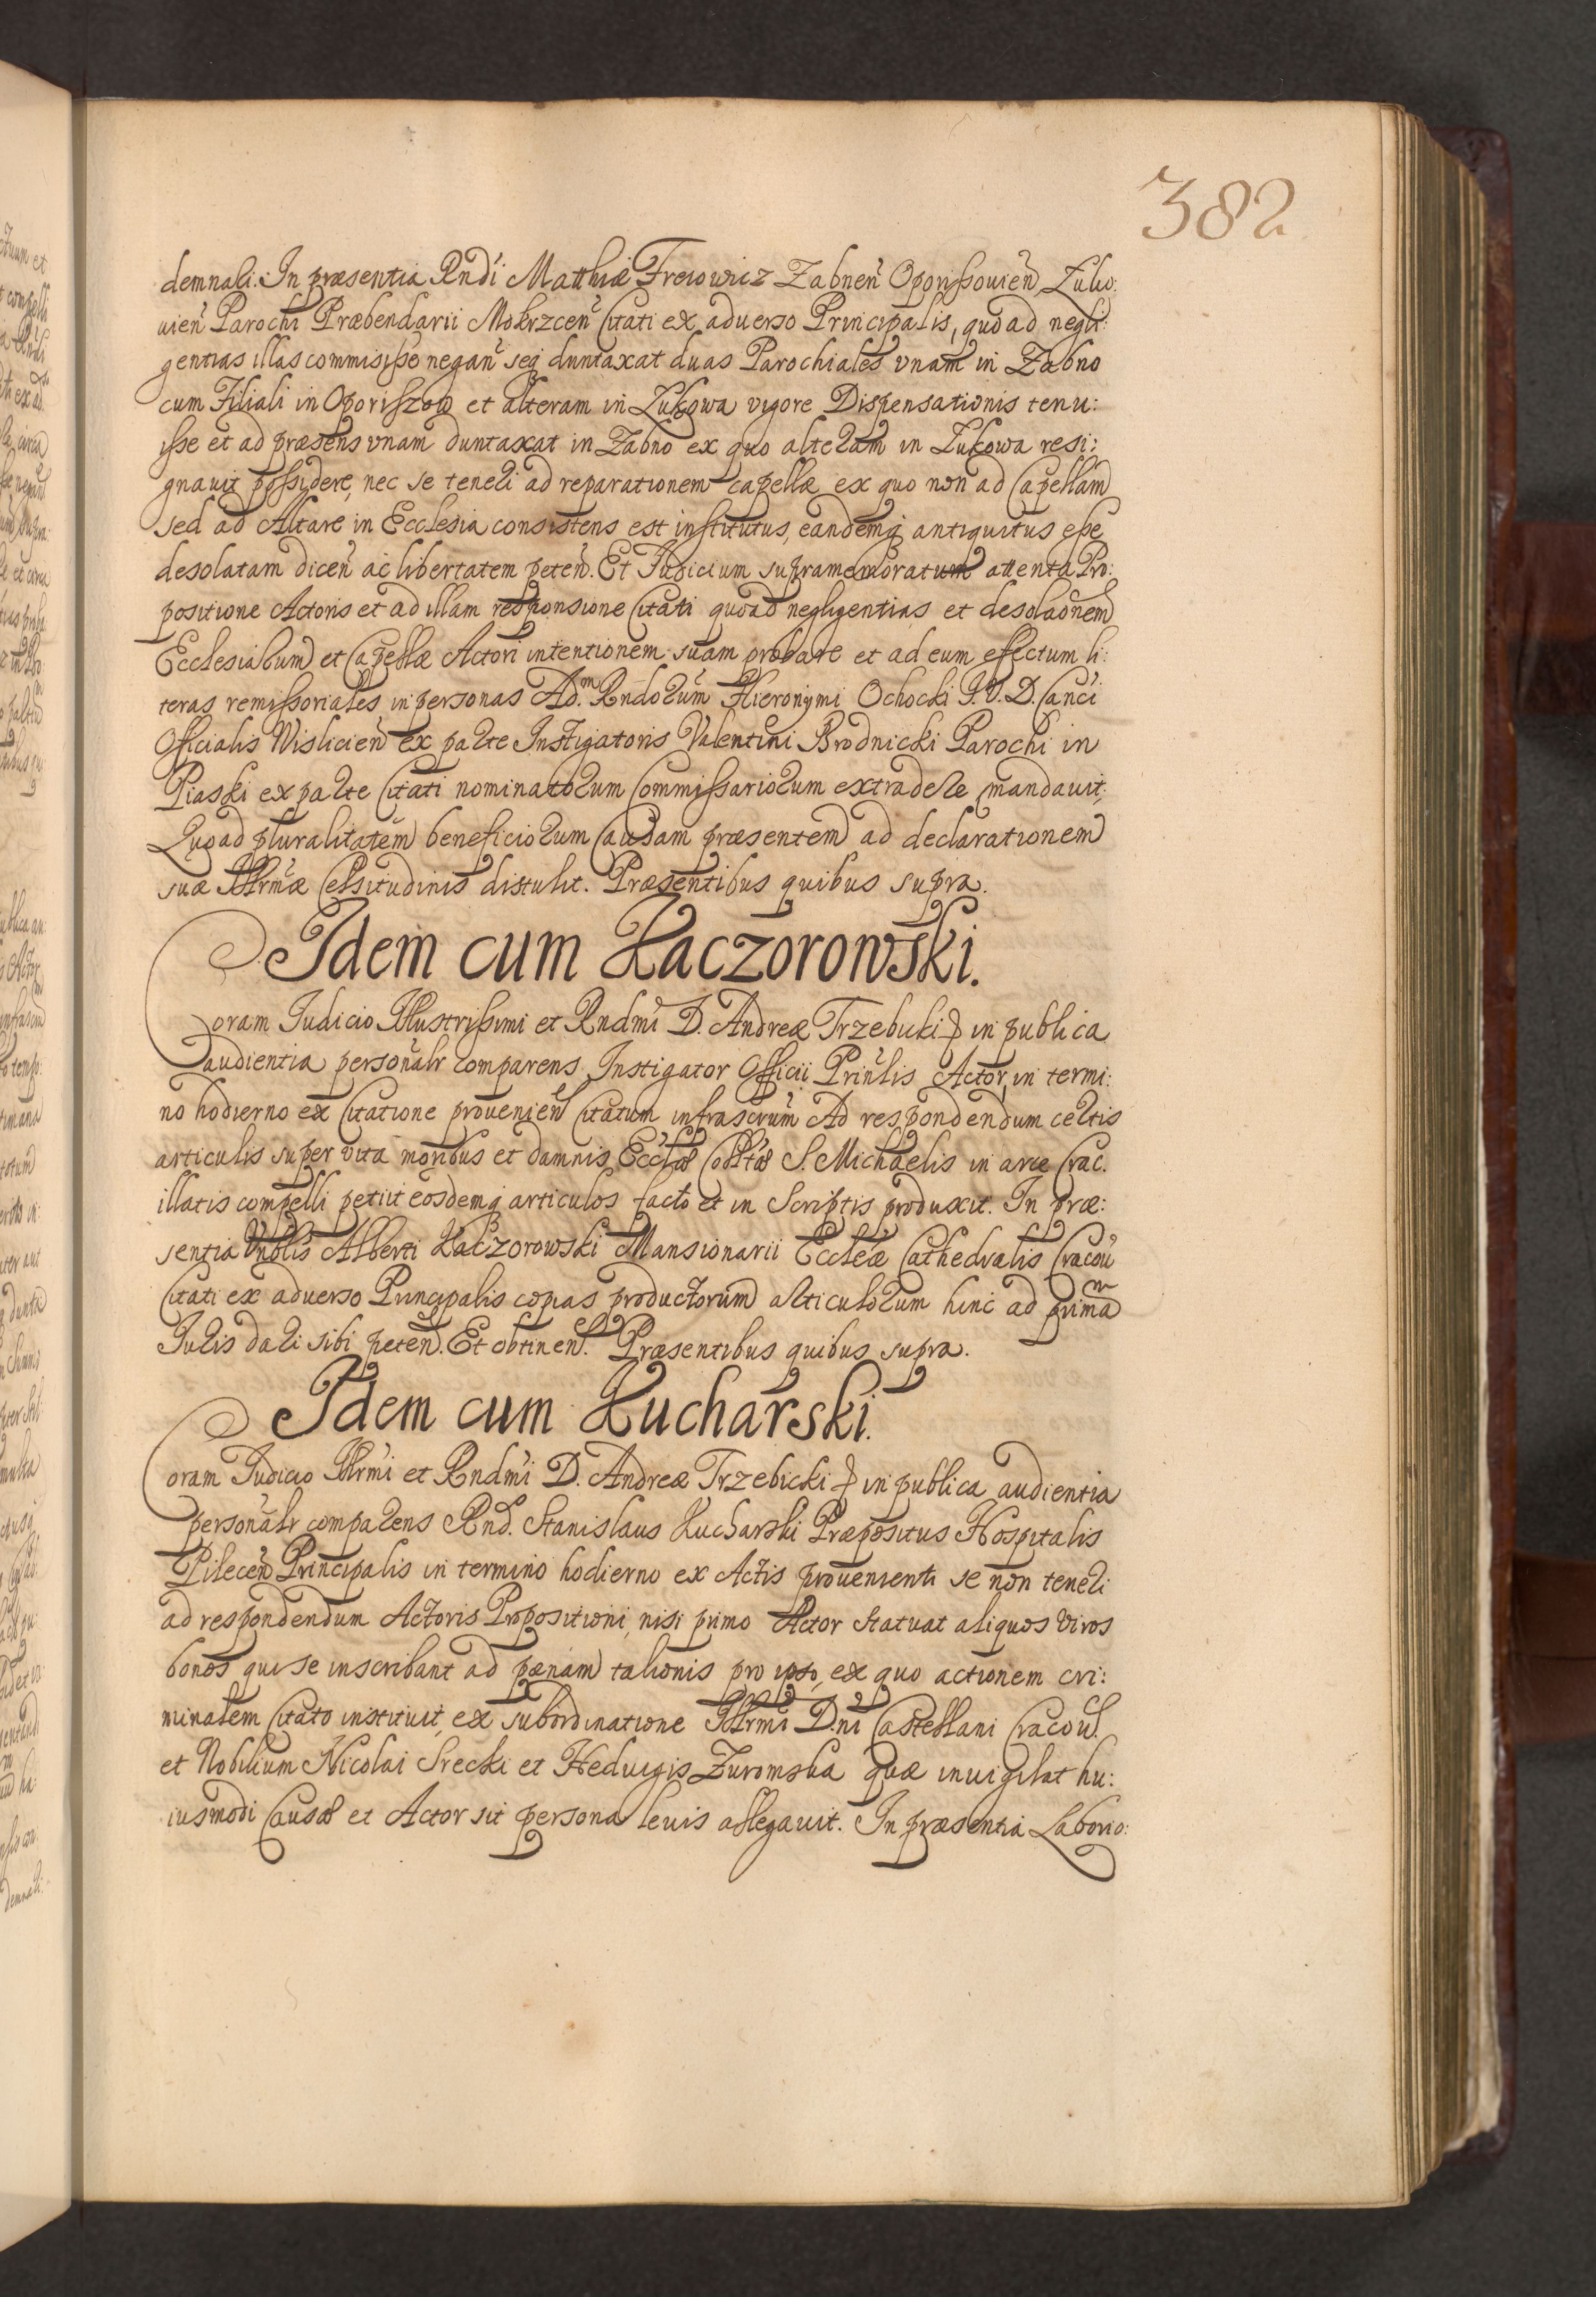 382
demnari. In præsentia Rndi Matthiæ Frerowicz Zabnen̄ Oporissouien̄ Luko:
uien̄ Parochi Præbendarii Mokrzcen̄ Citati ex aduerso Principalis, quoad negli:
gentias illas commisisse negan̄ seq duntaxat duas Parochiales vnam in Zabno
cum Filiali in Oporiszow et alteram in Lukowa vigore Dispensationis tenu:
isse et ad præsens vnam duntaxat in Zabno ex quo alteram in Lukowa resi:
gnauit possidere, nec se teneri ad reparationem capellæ ex quo non ad Capellam
sed ad Altare in Ecclesia consistens est institutus, eandemq antiquitus esse
desolatam dicen̄ ac libertatem peten̄. Et Judicium supramemoratum attenta Pro:
positione Actoris et ad illam responsione Citati quoad negligentias et desolaōnem
Ecclesiarum et Capellæ Actori intentionem suam probare et ad eum effectum li:
teras remissoriales in personas Ad.m Rndorum Hieronymi Ochocki J. V. D. Canci
Officialis Wislicien̄ ex parte Instigatoris Valentini Brodnicki Parochi in
Piaski ex parte Citati nominatorum Commissariorum extradere mandauit,
Quoad pluralitatem beneficiorum Causam præsentem ad declarationem
suæ Illrmæ Celsitudinis distulit. Præsentibus quibus supra.
Idem cum Kaczorowski.
Coram Judicio Illustrissimi et Rndmi D. Andreæ Trzebicki in publica
audientia personalr comparens Instigator Officii Prin̄lis Actor, in termi:
no hodierno ex Citatione prouenien̄ Citatum infrascrum̄ Ad respondendum certis
articulis super vita moribus et damnis Ecclæ Colltæ S. Michaelis in arce Crac.
illatis compelli petiit eosdemq articulos facto et in Scriptis produxit. In præ:
sentia Vnblis Alberti Kaczorowski Mansionarii Eccleæ Cathedralis Cracou
Citati ex aduerso Principalis copias productorum articulorum hinc ad primam
Juris dari sibi peten̄. Et obtinen̄. Præsentibus quibus supra.
Idem cum Kucharski.
Coram Judicio Illrmi et Rndmi D. Andreæ Trzebicki in publica audientia
personalr comparens Rnd. Stanislaus Kucharski Præpositus Hospitalis
Pilecen̄ Principalis in termino hodierno ex Actis prouenienti se non teneri
ad respondendum Actoris Propositioni, nisi primo Actor statuat aliquos viros
bonos qui se inscribant ad pænam talionis pro ipso, ex quo actionem cri:
minalem Citato instituit, ex subordinatione Illrmi D.ni Castellani Cracou.
et Nobilium Nicolai Srecki et Heduigis Zuromska quæ inuigilat hu:
iusmodi Causæ et Actor sit persona leuis allegauit. In præsentia Laborio: